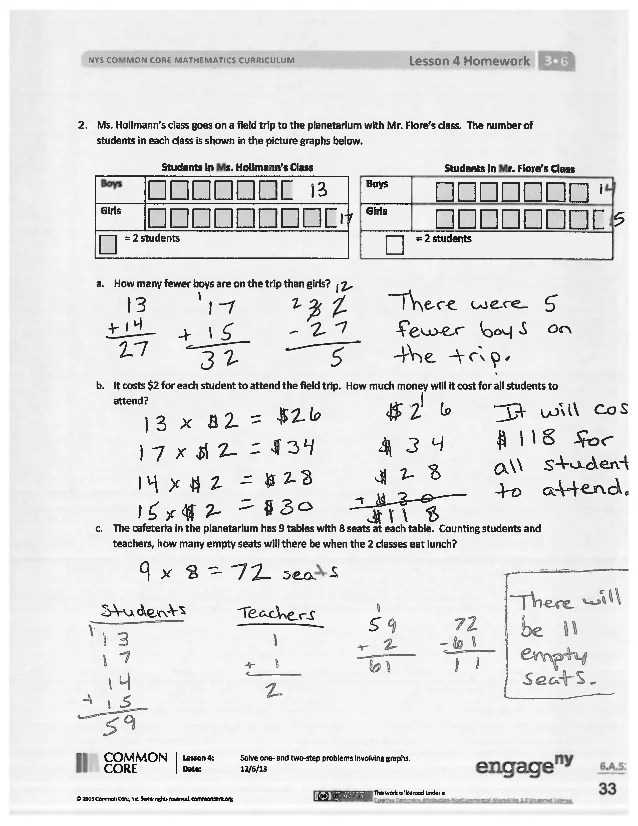 NYS COMMON CORE MATHEMATICS CURRICULUM
Lesson 4 Homework 3•6
2. Ms. Hollmann's class goes on a field trip to the planetarium with Mr. Fiore's class. The number of
students in each class is shown in the picture graphs below.
Students in Ms. Hollmann's Class
Boys 13
Girls 17
= 2 students
Students in Mr. Fiore's Class
Boys 14
Girls 15
= 2 students
a. How many fewer boys are on the trip than girls?
13
+14
27
1
17
+ 15
32
2 12
32
- 27
5
There were 5
fewer boys on
the trip.
b. It costs $2 for each student to attend the field trip. How much money will it cost for all students to
attend?
13 x $2 = $26
17 x $2 = $34
14 x $2 = $28
15 x $2 = $30
1
$26
$34
$28
+ $30
$118
It will cos
$118 for
all student
to attend.
c. The cafeteria in the planetarium has 9 tables with 8 seats at each table. Counting students and
teachers, how many empty seats will there be when the 2 classes eat lunch?
9 x 8 = 72 seats
Students
1
13
17
14
+ 15
59
Teachers
1
+ 1
2
1
59
+ 2
61
72
- 61
11
There will
be 11
empty
seats.
COMMON
CORE
Lesson 4: Solve one- and two-step problems involving graphs.
Date: 12/6/13
engageny
6.A.5
33
© 2013 Common Core, Inc. Some rights reserved. commoncore.org
This work is licensed under a